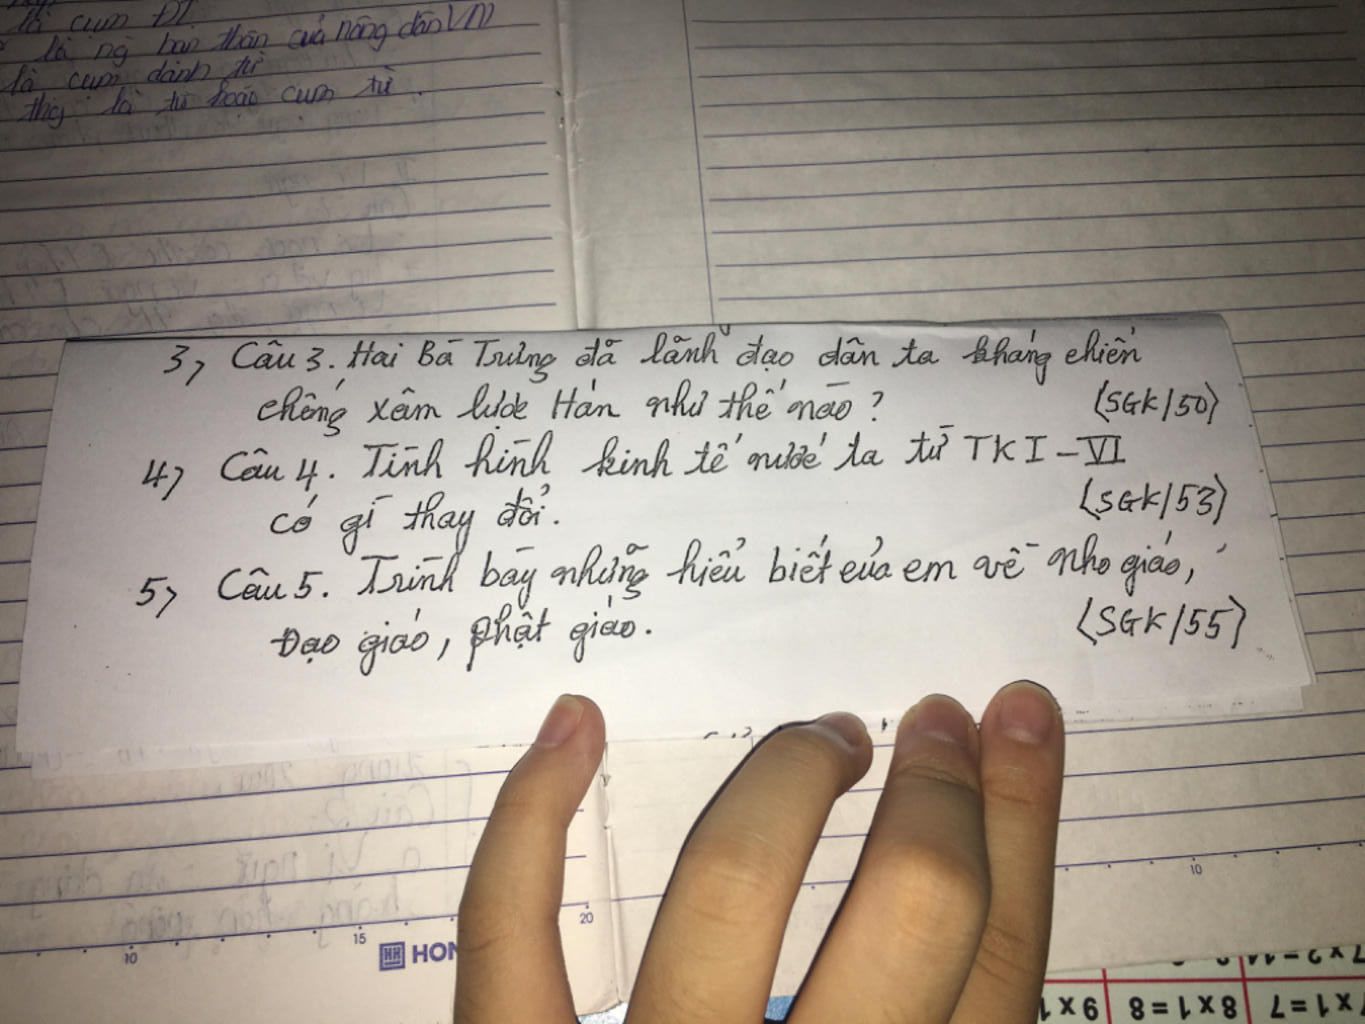 là cụm ĐT
là ng bạn thân của nông dân VN
là cụm danh từ
thg là từ hoặc cụm từ.
3, Câu 3. Hai Bà Trưng đã lãnh đạo dân ta kháng chiến
chống xâm lược Hán như thế nào?
(SGK/50)
4, Câu 4. Tình hình kinh tế nước ta từ TK I - VI
có gì thay đổi.
(SGK/53)
5, Câu 5. Trình bày những hiểu biết của em về nho giáo,
Đạo giáo, phật giáo.
(SGK/55)
10
15
20
HON
10
7 x 2 = 14
9 x 1
8 x 1 = 8
7 x 1 = 7